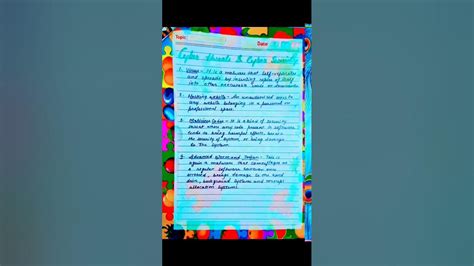 Topic:
Date:
Cyber threats & Cyber Security
1. Virus - It is a malware that self-replicates
and spreads by inserting copies of itself
into other executable codes or documents
2. Hacking website - An unauthorised access to
any website belonging in a personal or
professional space
3. Malicious Codes - It is a kind of security
threat where any code present in software
tends to bring harmful effects, breach
the security of system, or bring damage
to the System
4. Advanced Worm and Trojan - This is
again a malware that camouflages as
a regular software however once
accessed, brings damage to the hard
drive, background systems and corrupt
allocation systems